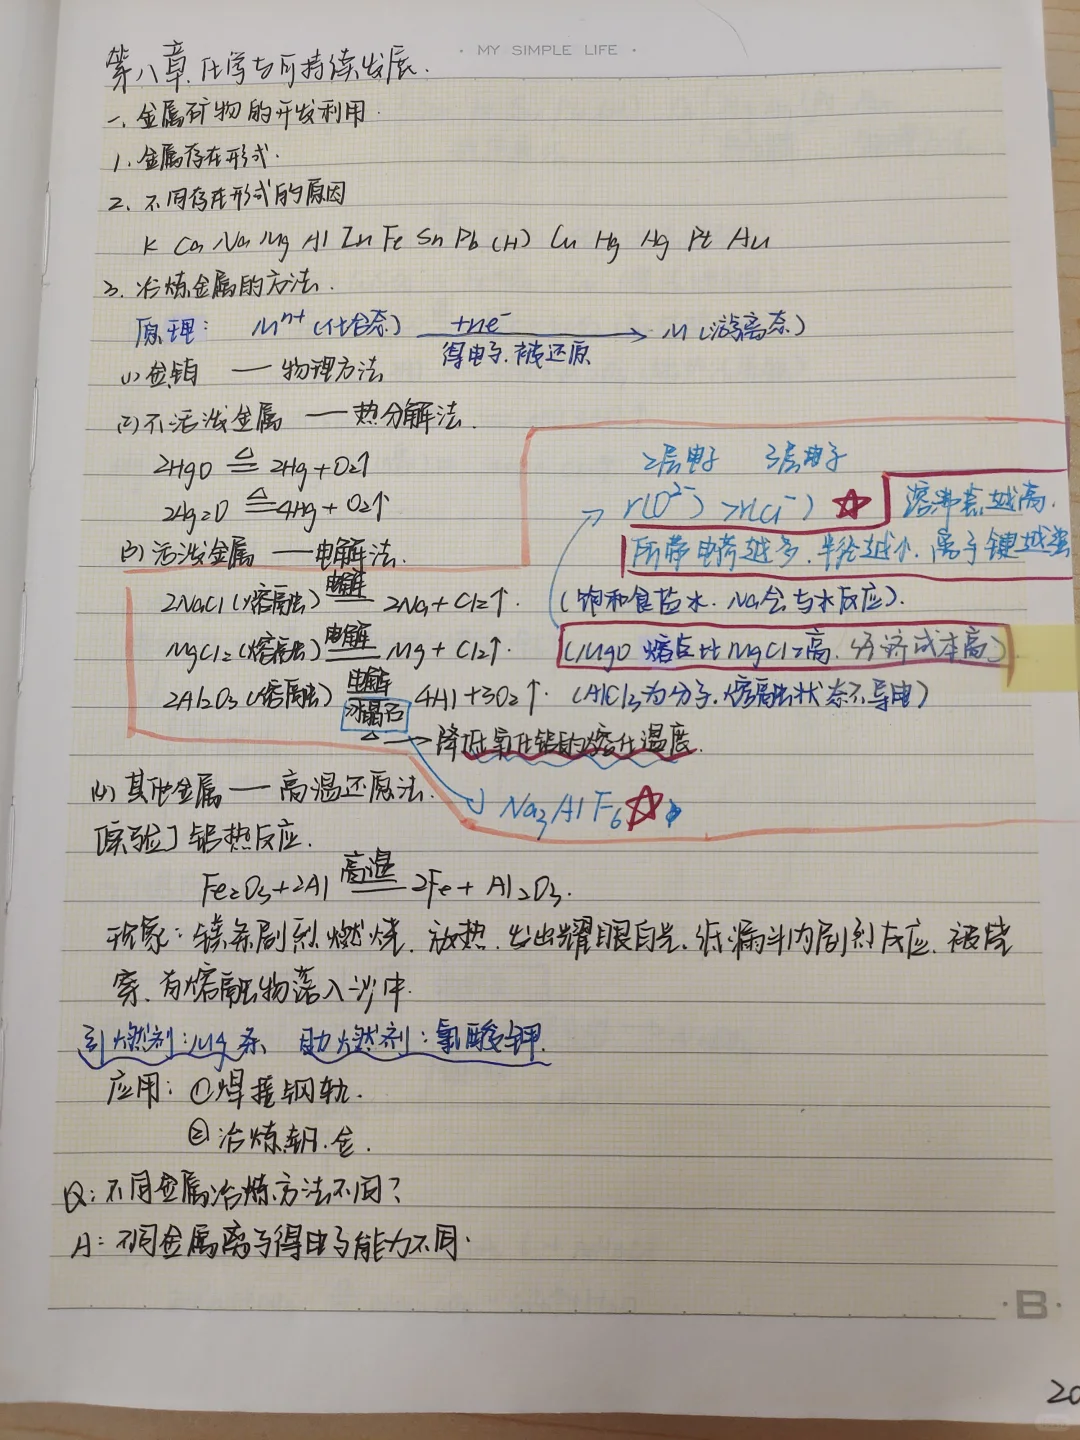 · MY SIMPLE LIFE ·
第八章.化学与可持续发展.
一.金属矿物的开发利用.
1.金属存在形式.
2.不同存在形式的原因
K Ca Na Mg Al Zn Fe Sn Pb (H) Cu Hg Ag Pt Au
3.冶炼金属的方法.
原理: Mⁿ⁺(化合态) +ne⁻ 得电子.被还原 → M(游离态)
(1)金铂 — 物理方法
(2)不活泼金属 — 热分解法.
2HgO ≜ 2Hg+O2↑
2Ag2O ≜ 4Ag+O2↑
2层电子 3层电子
r(O²⁻) > r(Cl⁻) ☆ 熔沸点越高.
所带电荷越多.半径越小.离子键越强
(3)活泼金属 — 电解法.
2NaCl(熔融) 电解 2Na+Cl2↑. (饱和食盐水.Na会与水反应).
MgCl2(熔融) 电解 Mg+Cl2↑. (MgO熔点比MgCl2高.经济成本高)
2Al2O3(熔融) 电解 冰晶石 4Al+3O2↑. (AlCl3为分子.熔融状态不导电)
△ → 降低氧化铝的熔化温度.
Na3AlF6☆
(4)其他金属 — 高温还原法.
[实验]铝热反应.
Fe2O3+2Al 高温 2Fe+Al2O3.
现象:镁条剧烈燃烧.放热.发出耀眼白光.纸漏斗内剧烈反应.被烧
穿.有熔融物落入沙中.
引燃剂:Mg条 助燃剂:氯酸钾.
应用:①焊接钢轨.
②冶炼钒.金.
Q:不同金属冶炼方法不同?
A:不同金属离子得电子能力不同.
·B·
20